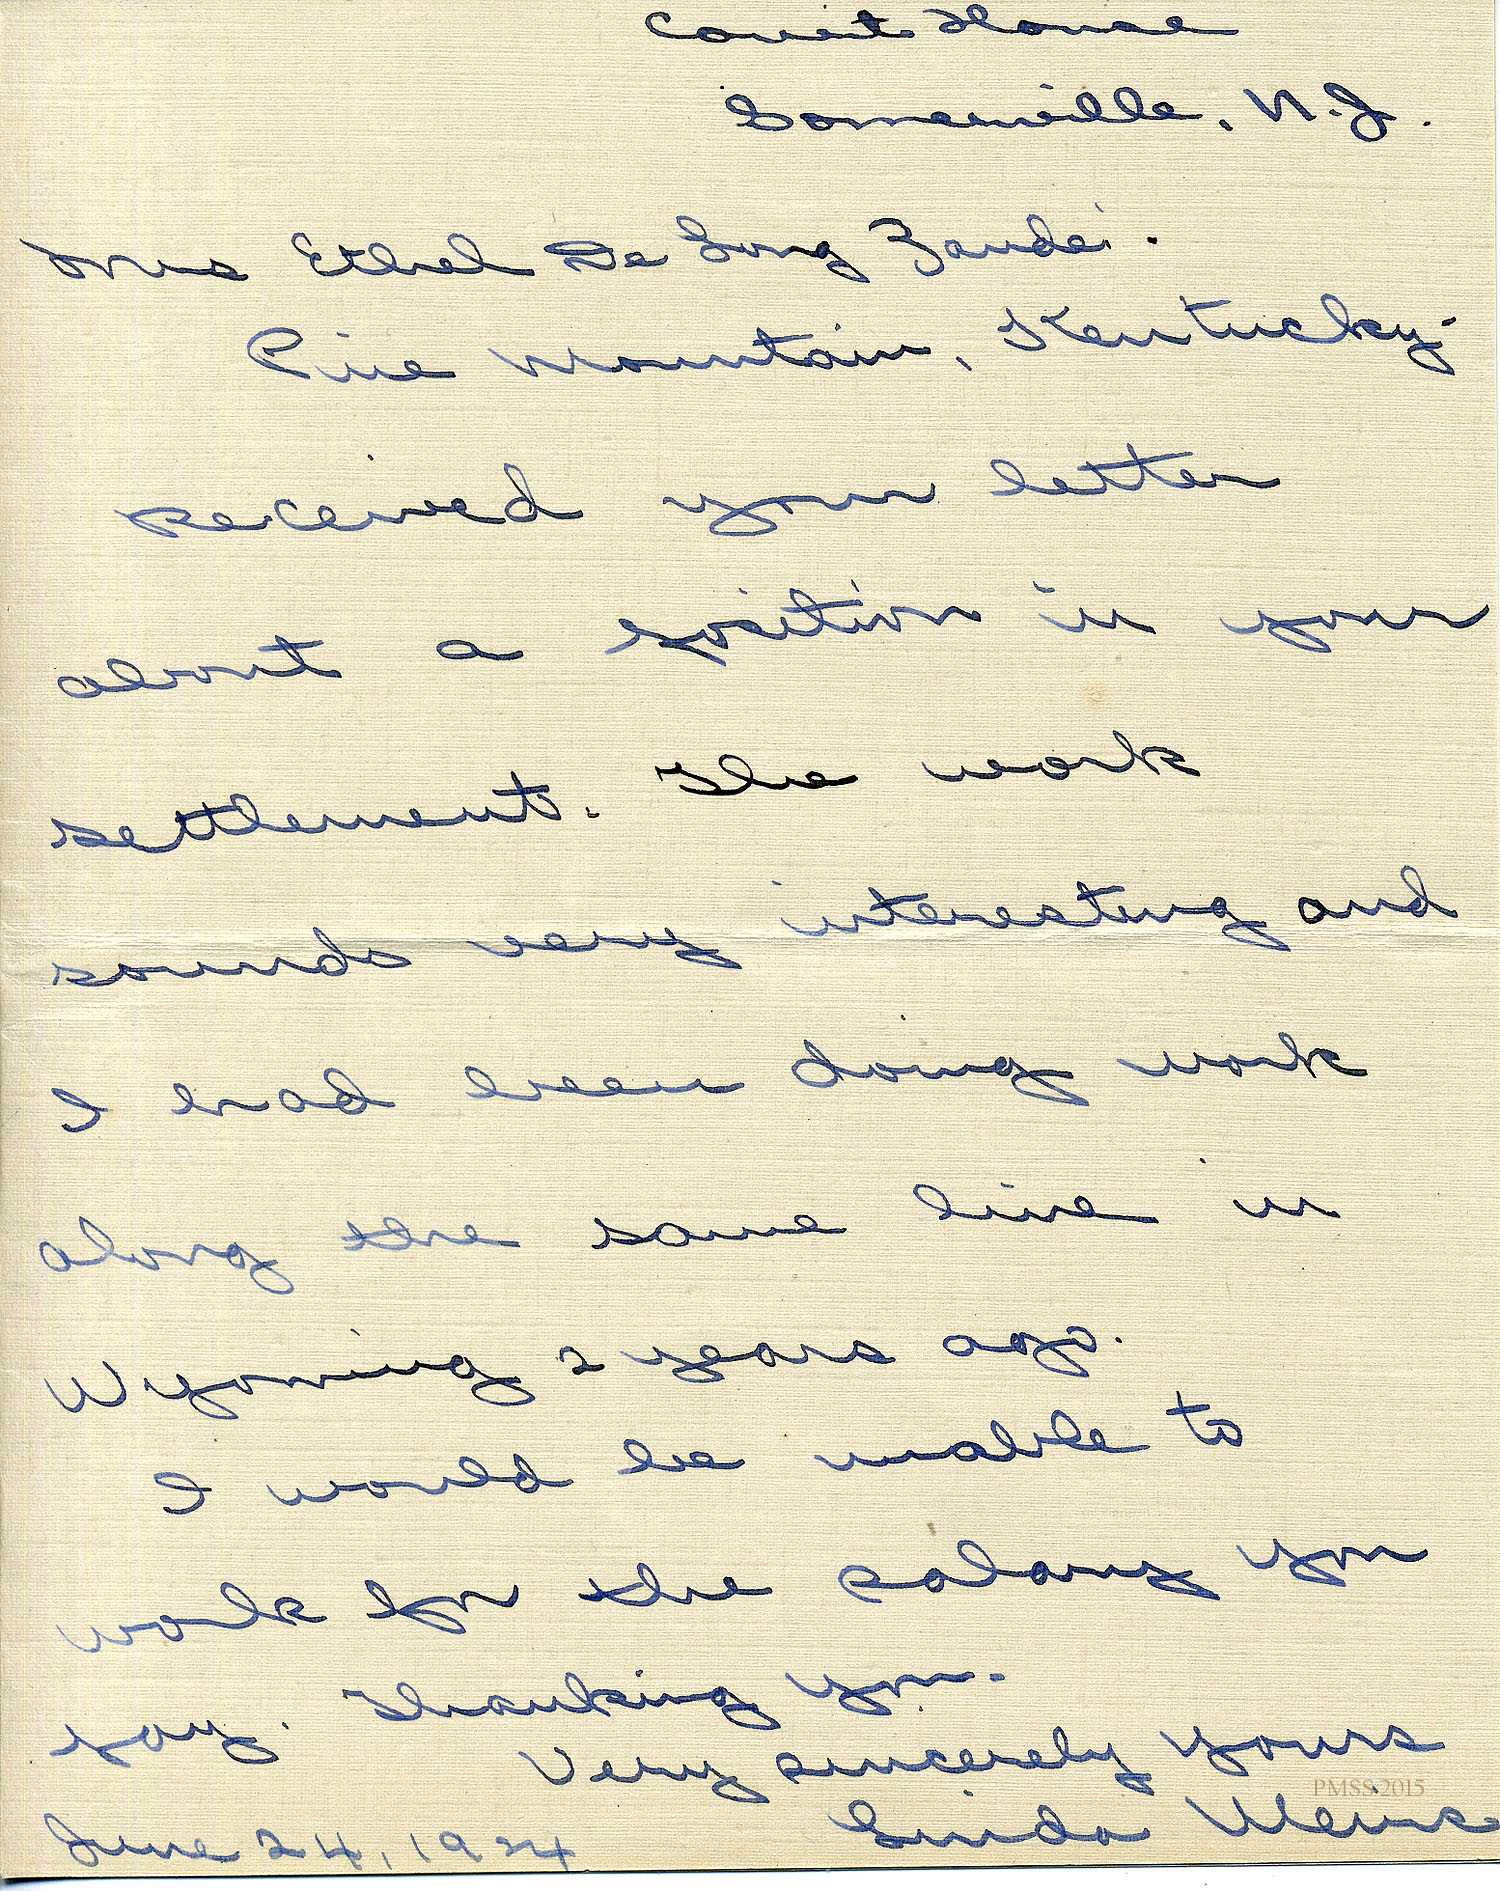 Court House
Somerville, N.J.
Mrs Ethel De Long Zande.
Pine Mountain, Kentucky.
Received your letter
about a position in your
settlement. The work
sounds very interesting and
I had been doing work
along the same line in
Wyoming 2 years ago.
I would be unable to
work for the salary you
pay. Thanking you.
Very sincerely yours
PMSS 2015
Linda
June 24, 1924